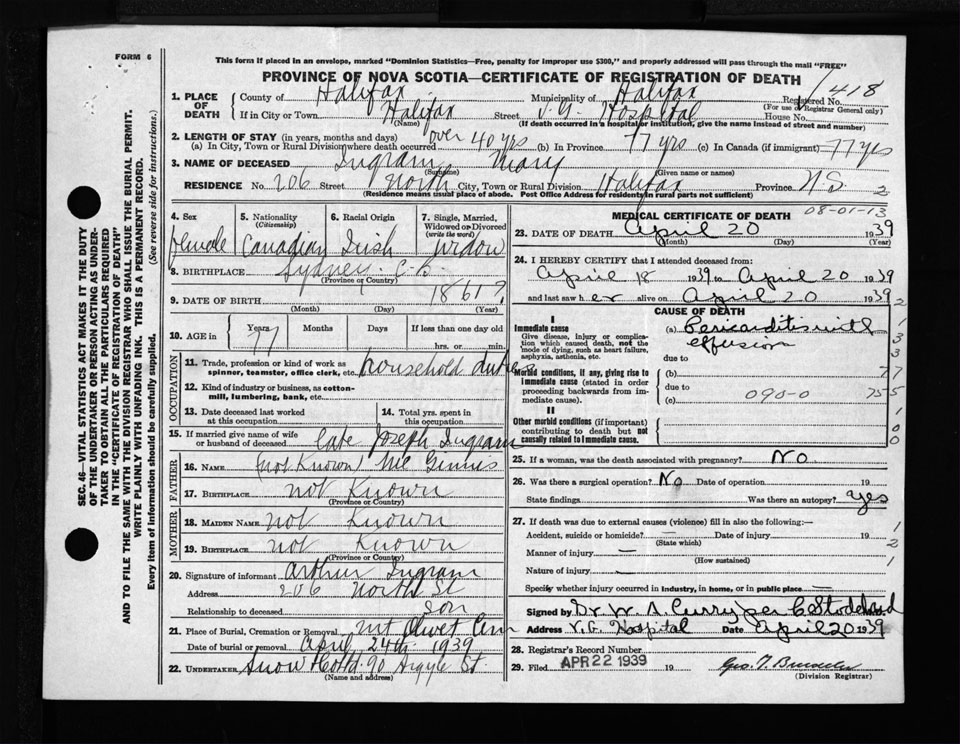 FORM 6
This form if placed in an envelope, marked "Dominion Statistics—Free, penalty for improper use $300," and properly addressed will pass through the mail "FREE"
PROVINCE OF NOVA SCOTIA—CERTIFICATE OF REGISTRATION OF DEATH
1. PLACE OF DEATH { County of Halifax Municipality of Halifax Registered No. 418
(For use of Registrar General only)
If in City or Town Halifax Street V.G. Hospital House No.
(Name) (If death occurred in a hospital or institution, give the name instead of street and number)
2. LENGTH OF STAY (in years, months and days)
(a) In City, Town or Rural Division where death occurred over 40 yrs (b) In Province 77 yrs (c) In Canada (if immigrant) 77 yrs
3. NAME OF DECEASED Ingram Mary
(Surname) (Given name or names)
RESIDENCE No. 206 Street North City, Town or Rural Division Halifax Province N.S. 2
(Residence means usual place of abode. Post Office Address for residents in rural parts not sufficient)
4. Sex female
5. Nationality (Citizenship) Canadian
6. Racial Origin Irish
7. Single, Married, Widowed or Divorced (write the word) widow
8. BIRTHPLACE Sydney C.B.
(Province or Country)
9. DATE OF BIRTH 1861?
(Month) (Day) (Year)
10. AGE in { Years Months Days If less than one day old
77 hrs. or min.
OCCUPATION
11. Trade, profession or kind of work as spinner, teamster, office clerk, etc. household duties
12. Kind of industry or business, as cotton-mill, lumbering, bank, etc.
13. Date deceased last worked at this occupation
14. Total yrs. spent in this occupation
15. If married give name of wife or husband of deceased late Joseph Ingram
FATHER
16. NAME (not known) Mc Ginnis
17. BIRTHPLACE not known
(Province or Country)
MOTHER
18. MAIDEN NAME not known
19. BIRTHPLACE not known
(Province or Country)
20. Signature of informant Arthur Ingram
Address 206 North St
Relationship to deceased son
21. Place of Burial, Cremation or Removal Mt Olivet Cem
Date of burial or removal April 24th 1939
22. UNDERTAKER Snow & Co Ltd 90 Argyle St
(Name and address)
MEDICAL CERTIFICATE OF DEATH
08-01-13
23. DATE OF DEATH April 20 1939
(Month) (Day) (Year)
24. I HEREBY CERTIFY that I attended deceased from:
April 18 1939 to April 20 1939
and last saw her alive on April 20 1939
CAUSE OF DEATH
I
Immediate cause
Give disease, injury or complication which caused death, not the mode of dying, such as heart failure, asphyxia, asthenia, etc.
(a) Pericarditis with effusion
due to
Morbid conditions, if any, giving rise to immediate cause (stated in order proceeding backwards from immediate cause).
(b)
due to
(c) 090-0
II
Other morbid conditions (if important) contributing to death but not causally related to immediate cause.
25. If a woman, was the death associated with pregnancy? No
26. Was there a surgical operation? No Date of operation 19
State findings Was there an autopsy? yes
27. If death was due to external causes (violence) fill in also the following:—
Accident, suicide or homicide? Date of injury 19
(State which)
Manner of injury —
(How sustained)
Nature of injury —
Specify whether injury occurred in industry, in home, or in public place —
Signed by Dr W. A. Curry per C Stoddard
Address V.G. Hospital Date April 20 1939
28. Registrar's Record Number
29. Filed APR 22 1939 19
(Division Registrar)
SEC. 46—VITAL STATISTICS ACT MAKES IT THE DUTY
OF THE UNDERTAKER OR PERSON ACTING AS UNDER-
TAKER TO OBTAIN ALL THE PARTICULARS REQUIRED
IN THE "CERTIFICATE OF REGISTRATION OF DEATH"
AND TO FILE THE SAME WITH THE DIVISION REGISTRAR WHO SHALL ISSUE THE BURIAL PERMIT.
WRITE PLAINLY WITH UNFADING INK. THIS IS A PERMANENT RECORD.
Every item of information should be carefully supplied. (See reverse side for instructions.)